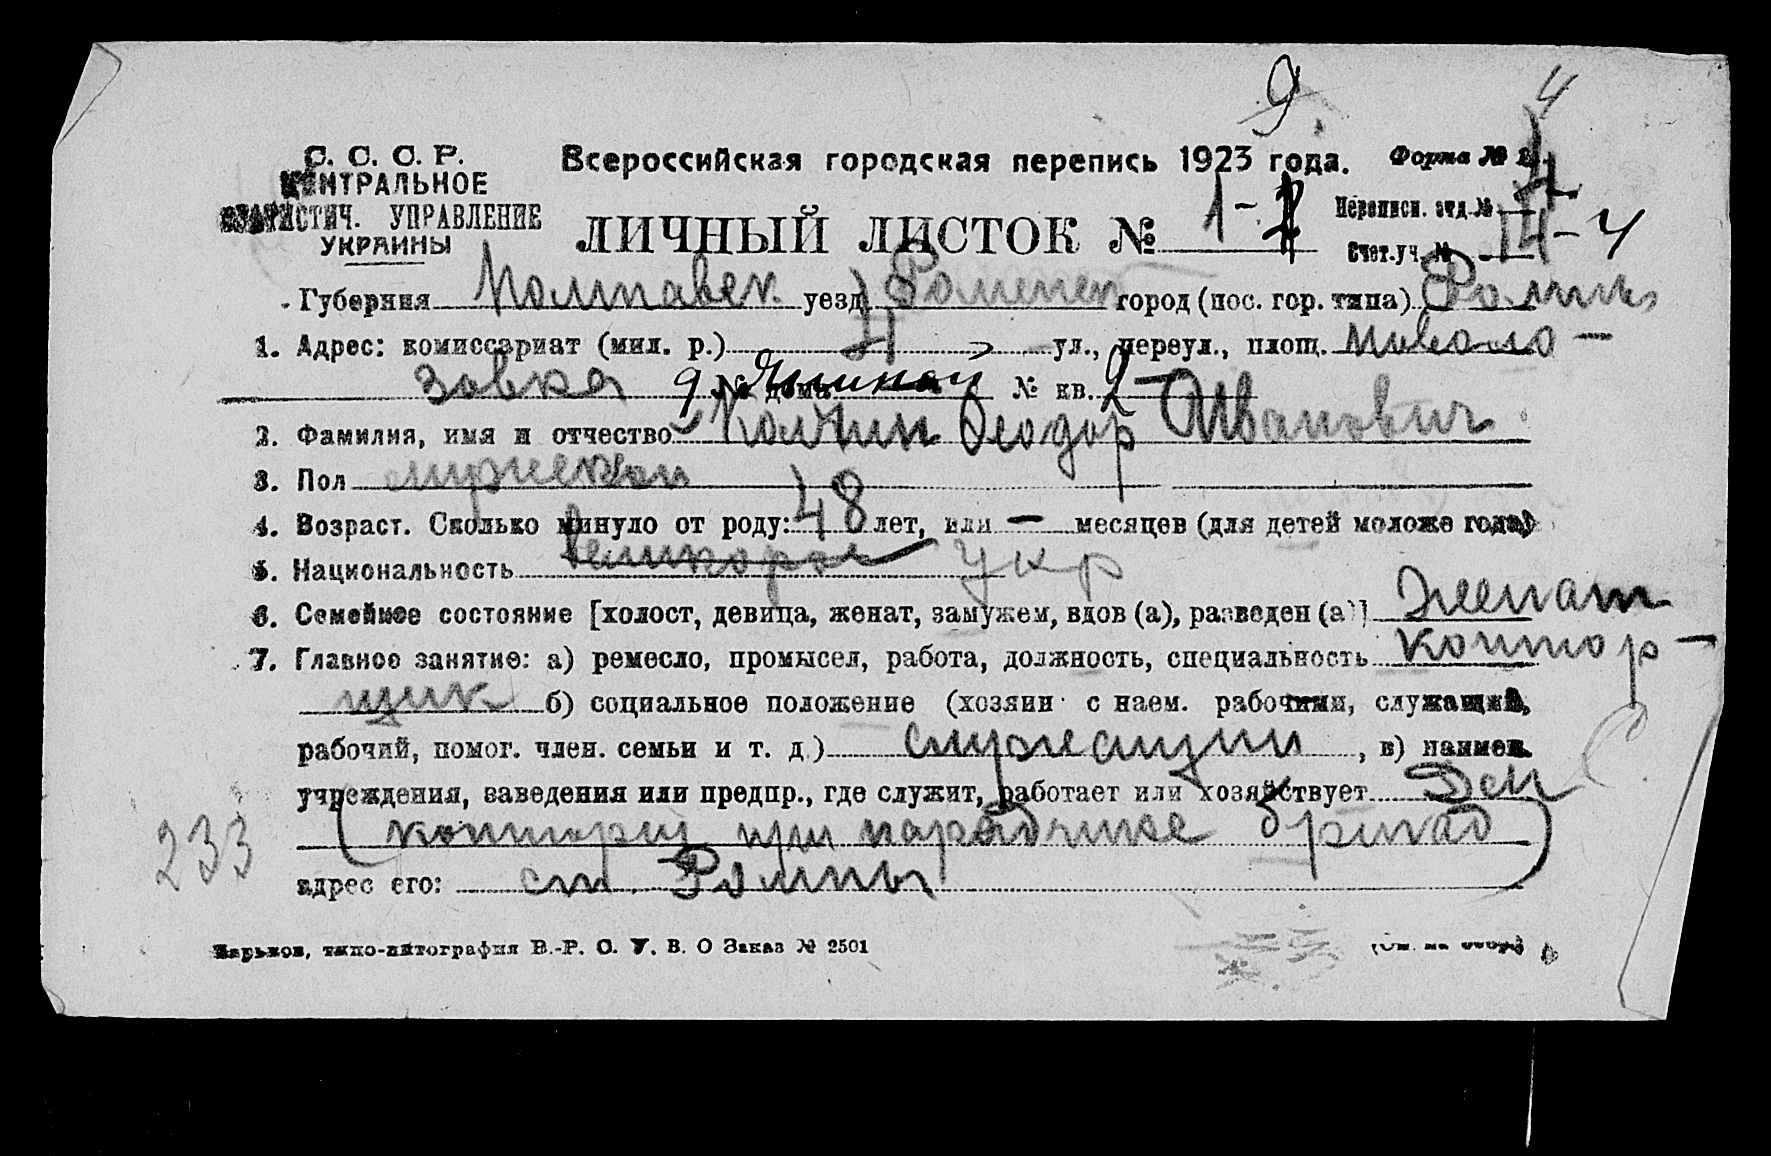 9
4
С. С. С. Р. Всероссийская городская перепись 1923 года. Форма №
ЦЕНТРАЛЬНОЕ
СТАТИСТИЧ. УПРАВЛЕНИЕ ЛИЧНЫЙ ЛИСТОК № 1- Переписн. отд. №
УКРАИНЫ Счет. уч. № 14-4
Губерния Полтавск. уезд Роменск город (пос. гор. типа) Ромны
1. Адрес: комиссариат (мил. р.) ул., переул., площ.
№ дома № кв. 2
2. Фамилия, имя и отчество Феодор Иванович
3. Пол мужской
4. Возраст. Сколько минуло от роду: 48 лет, или — месяцев (для детей моложе года)
5. Национальность укр
6. Семейное состояние [холост, девица, женат, замужем, вдов (а), разведен (а)] женат
7. Главное занятие: а) ремесло, промысел, работа, должность, специальность контор-
щик б) социальное положение (хозяин с наем. рабочими, служащий,
рабочий, помог. член. семьи и т. д.) служащий, в) наимен.
учреждения, заведения или предпр., где служит, работает или хозяйствует
конторщ при нарядчике бригад
233
адрес его: ст. Ромны
Харьков, типо-литография В.-Р. С. У. В. О Заказ № 2501 (См. на обор.)